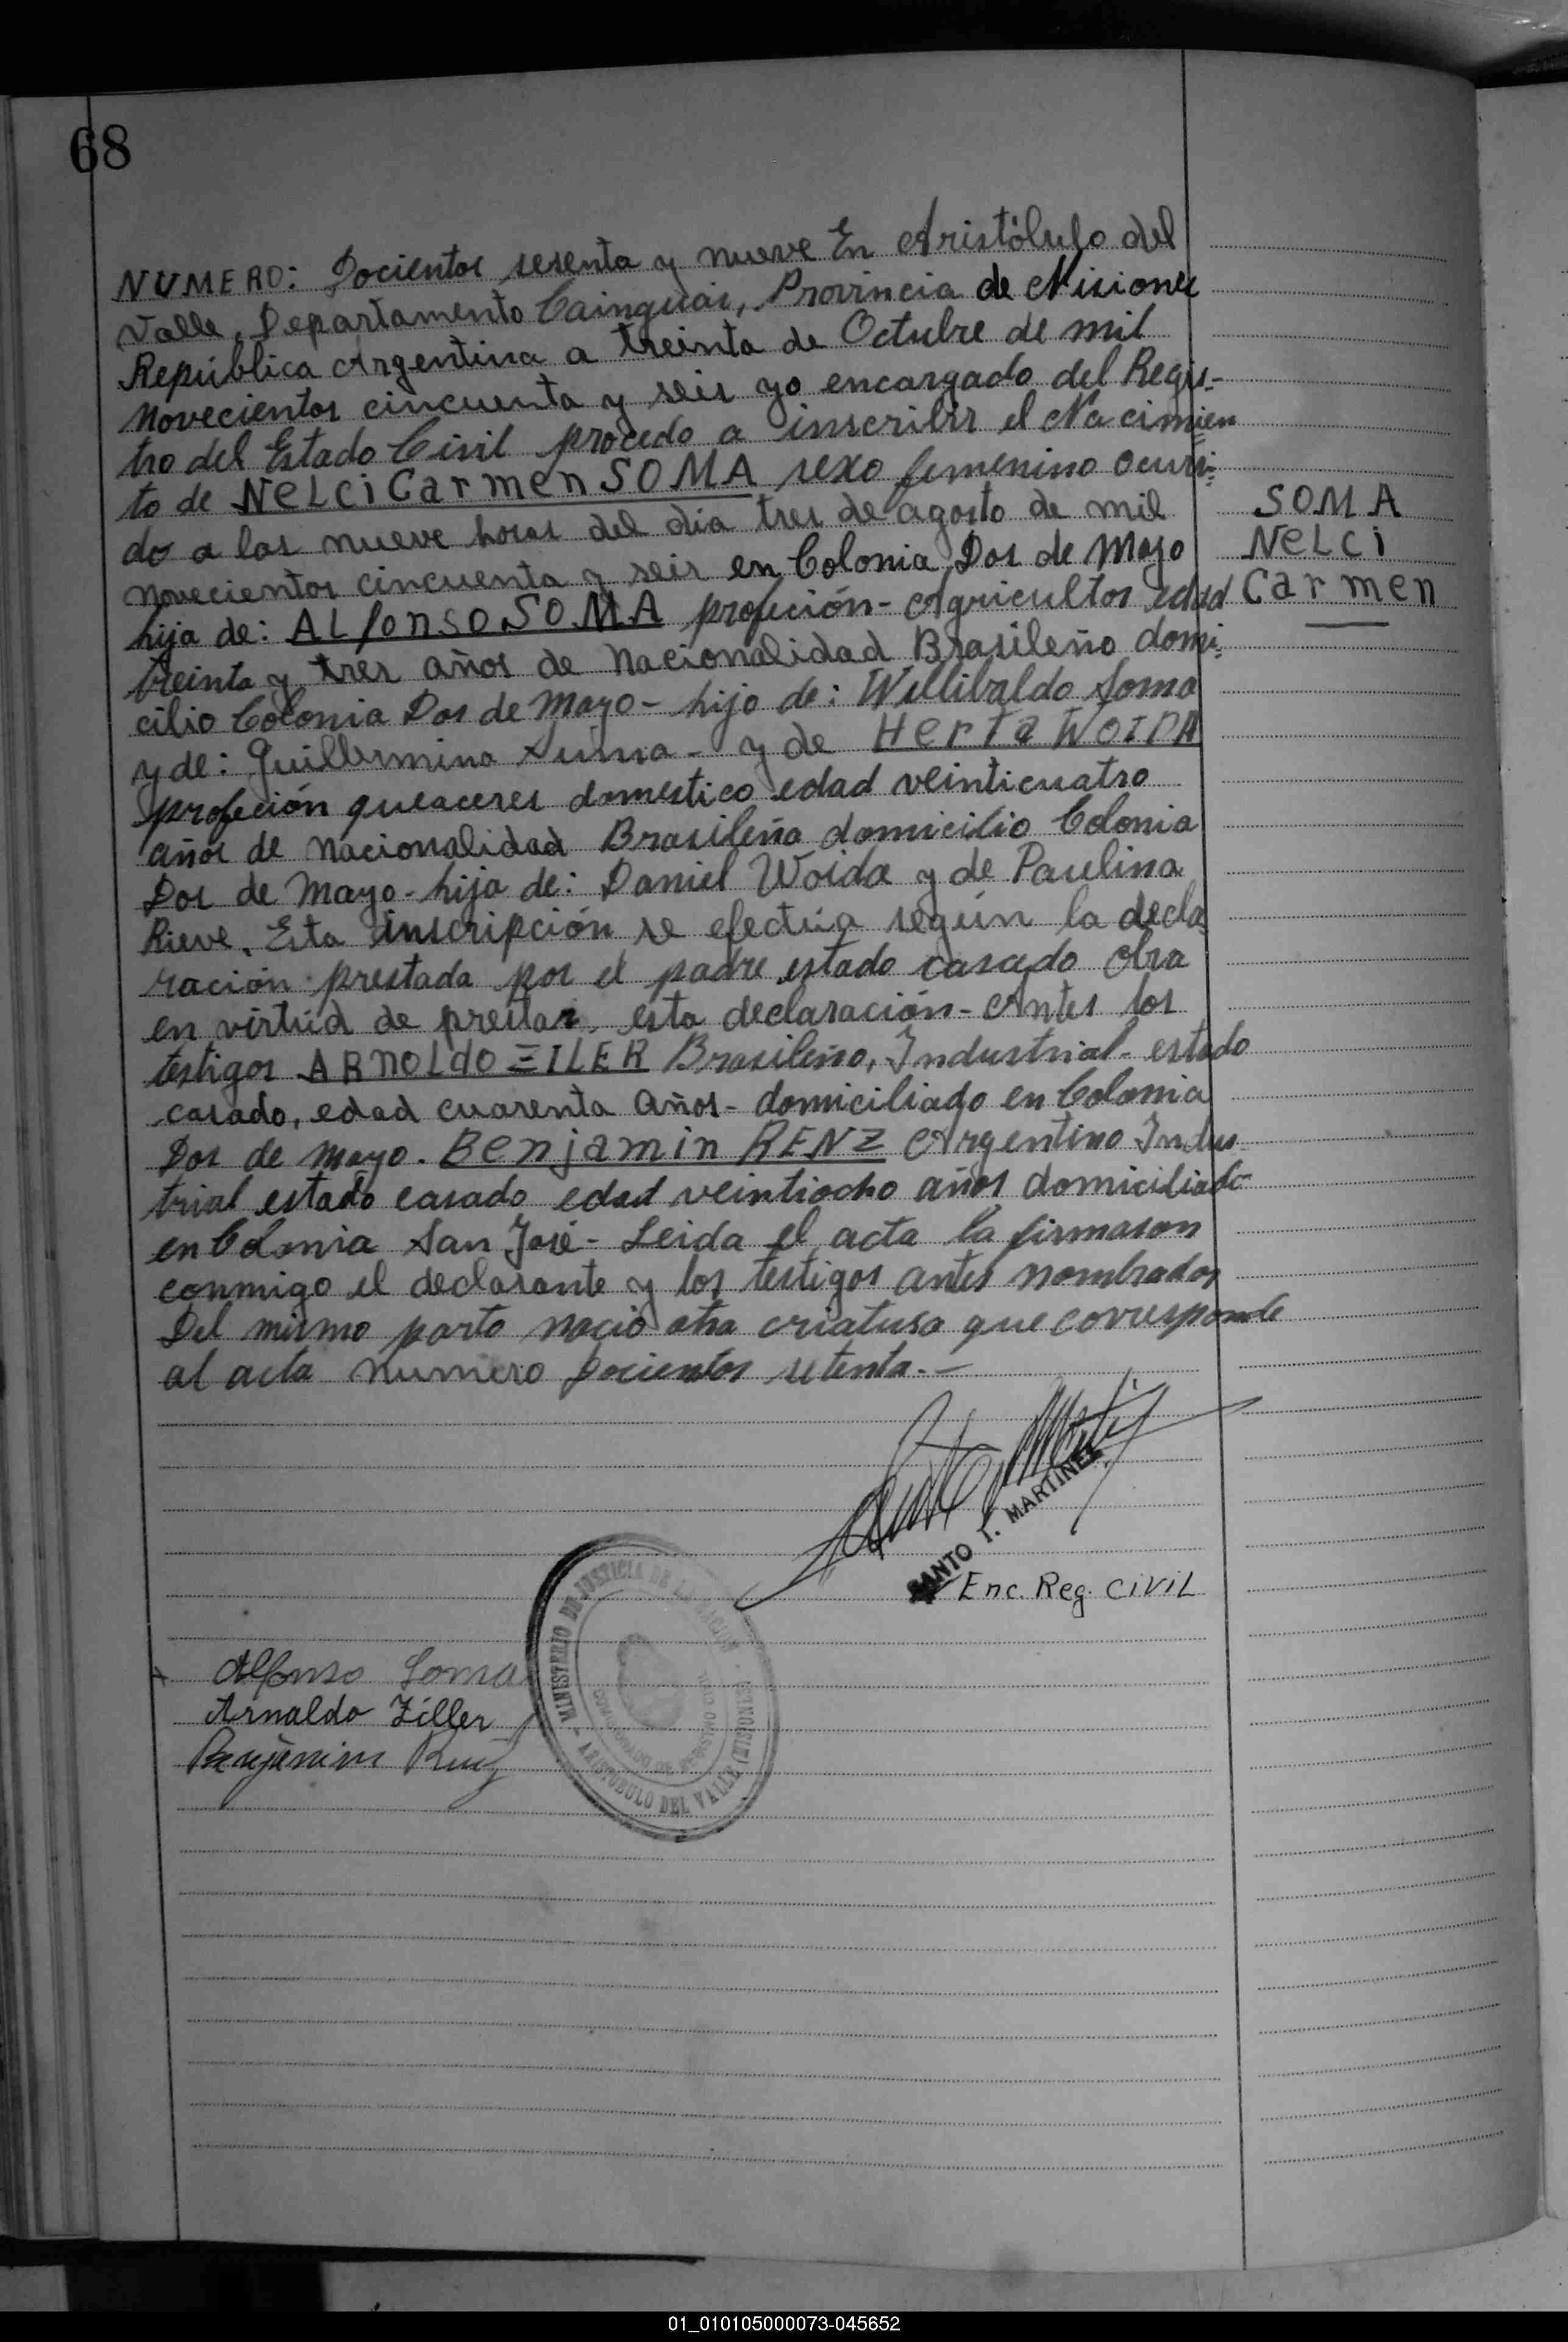 68
NUMERO: Docientos sesenta y nueve En Aristóbulo del
Valle, Departamento Cainguás, Provincia de Misiones
República Argentina a treinta de Octubre de mil
novecientos cincuenta y seis yo encargado del Regis-
tro del Estado Civil procedo a inscribir el Nacimien
to de NELCi Carmen SOMA sexo femenino ocurri-
do a las nueve horas del día tres de agosto de mil
novecientos cincuenta y seis en Colonia Dos de Mayo
hija de: ALfonso SOMA profeción- Agricultor edad
treinta y tres años de nacionalidad Brasileño domi-
cilio Colonia Dos de Mayo - hijo de: Willibaldo Soma
y de: Guillermina Suma - y de Herta WOIDA
profeción queaceres domestico edad veinticuatro
años de nacionalidad Brasileña domicilio Colonia
Dos de Mayo - hija de: Daniel Woida y de Paulina
Rieve. Esta inscripción se efectúa según la decla
ración prestada por el padre estado casado Obra
en virtúd de prestar esta declaración- Antes los
testigos ARNOLdO ZILER Brasileño, Industrial- estado
casado, edad cuarenta años - domiciliado en Colonia
Dos de Mayo. Benjamin RENZ Argentino Indus-
trial estado casado edad veintiocho años domiciliado
en Colonia San José - Leida el acta la firmaron
conmigo el declarante y los testigos antes nombrados
Del mismo parto nació otra criatura que corresponde
al acta numero Docientos setenta.-
SOMA
NELCi
Carmen
SANTO T. MARTINEZ
Enc. Reg. CiViL
Alfonso Soma
Arnaldo Ziller
Benjamin Renz
MINISTERIO DE JUSTICIA DE LA NACION
- ARISTOBULO DEL VALLE (MISIONES) -
01_010105000073-045652